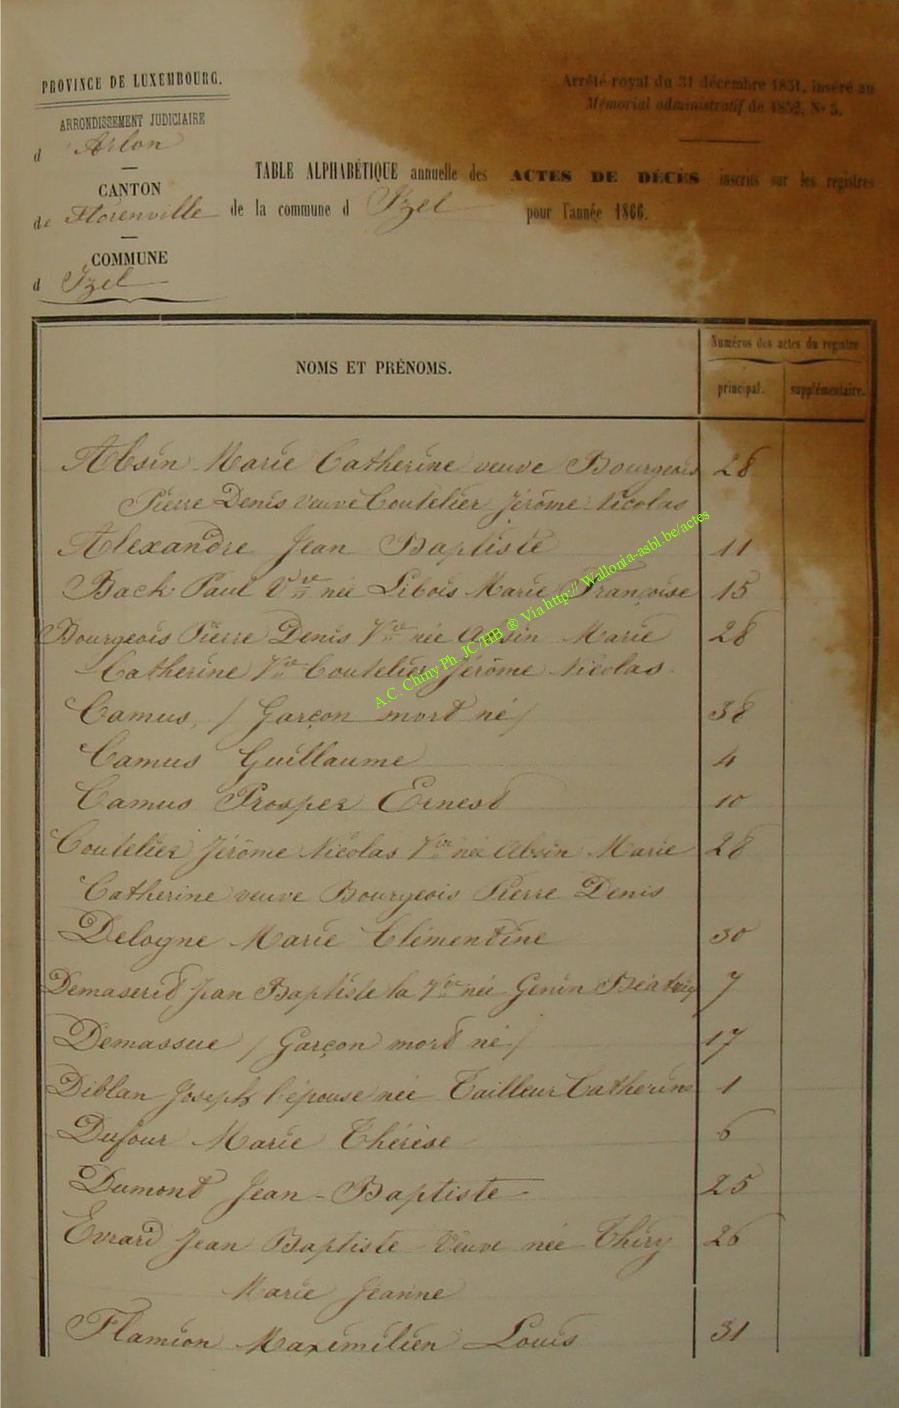 PROVINCE DE LUXEMBOURG.
ARRONDISSEMENT JUDICIAIRE
d Arlon
CANTON
de Florenville
COMMUNE
d Izel
Arrêté royal du 31 décembre 1851, inséré au
Mémorial administratif de 1852, No 5.
TABLE ALPHABÉTIQUE annuelle des ACTES DE DÉCÈS inscrits sur les registres
de la commune d Izel pour l'année 1866.
NOMS ET PRÉNOMS.
Numéros des actes du registre
principal. supplémentaire.
Absin Marie Catherine veuve Bourgeois 28
Pierre Denis veuve Coutelier Jérôme Nicolas
Alexandre Jean Baptiste 11
Back Paul Vve née Libois Marie Françoise 15
Bourgeois Pierre Denis Vve née Absin Marie 28
Catherine Vve Coutelier Jérôme Nicolas
Camus, / Garçon mort né / 38
Camus Guillaume 4
Camus Prosper Ernest 10
Coutelier Jérôme Nicolas Vve née Absin Marie 28
Catherine veuve Bourgeois Pierre Denis
Delogne Marie Clémentine 30
Jean Baptiste la Vve née Genin 7
Demassue / Garçon mort né / 17
Diblan Joseph l'épouse née Tailleur Catherine 1
Dufour Marie Thérèse 6
Dumont Jean-Baptiste 25
Evrard Jean Baptiste Veuve née Thiry 26
Marie Jeanne
Flamion Maximilien Louis 31
A.C. Chiny Ph. JC/HB ® Via http://Wallonia-asbl.be/actes